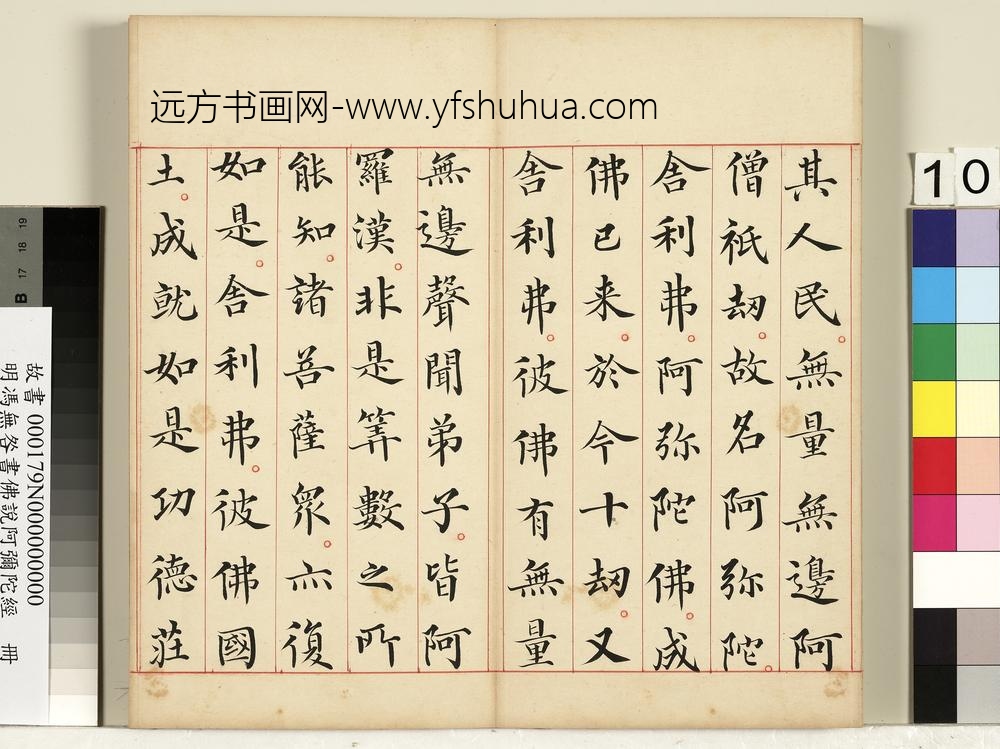 远方书画网-www.yfshuhua.com
其人民。無量無邊阿
僧祇劫。故名阿弥陀。
舎利弗。阿弥陀佛。成
佛已来。於今十劫。又
舎利弗。彼佛有無量
無邊聲聞弟子。皆阿
羅漢。非是筭數之所
能知。諸菩薩眾。亦復
如是。舎利弗。彼佛國
土。成就如是功德荘
10
19
18
17
B
故書 000179N000000000
明馮無咎書佛說阿彌陀經 冊